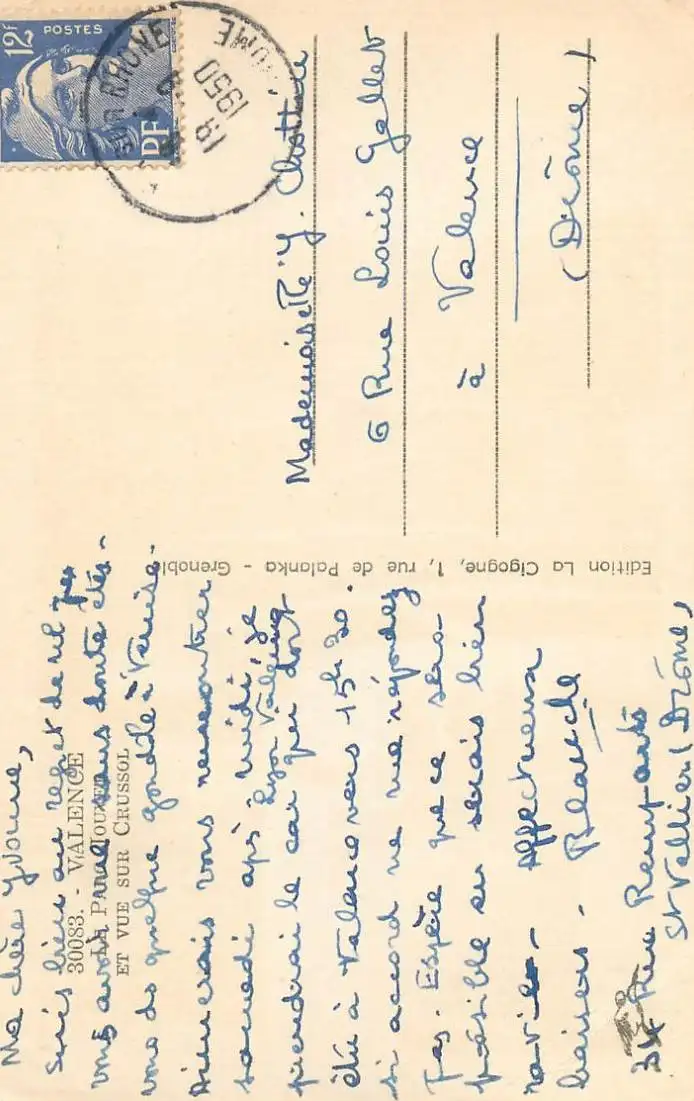 12F
POSTES
RF
SUR RHONE
18
1950
DROME
Mademoiselle Y.
6 Rue Louis Gallet
à Valence
(Drôme)
Edition La Cigogne, 1, rue de Palanka - Grenoble
30083. - VALENCE
ET VUE SUR CRUSSOL
Ma chère Yvonne,
Suis bien au regret de ne pas
vous avoir vue sans doute étés-
vous do quelque gondole à Venise.
Aimerais vous rencontrer
samedi aps midi, je
prendrai le car Lyon Valence qui doit
être à Valence vers 15h 30.
si accord ne me répondez
pas. Espère que ce sera
possible en serais bien
ravie - affectueux
baisers - Blanche
Rue Remparts
St Vallier (Drôme)